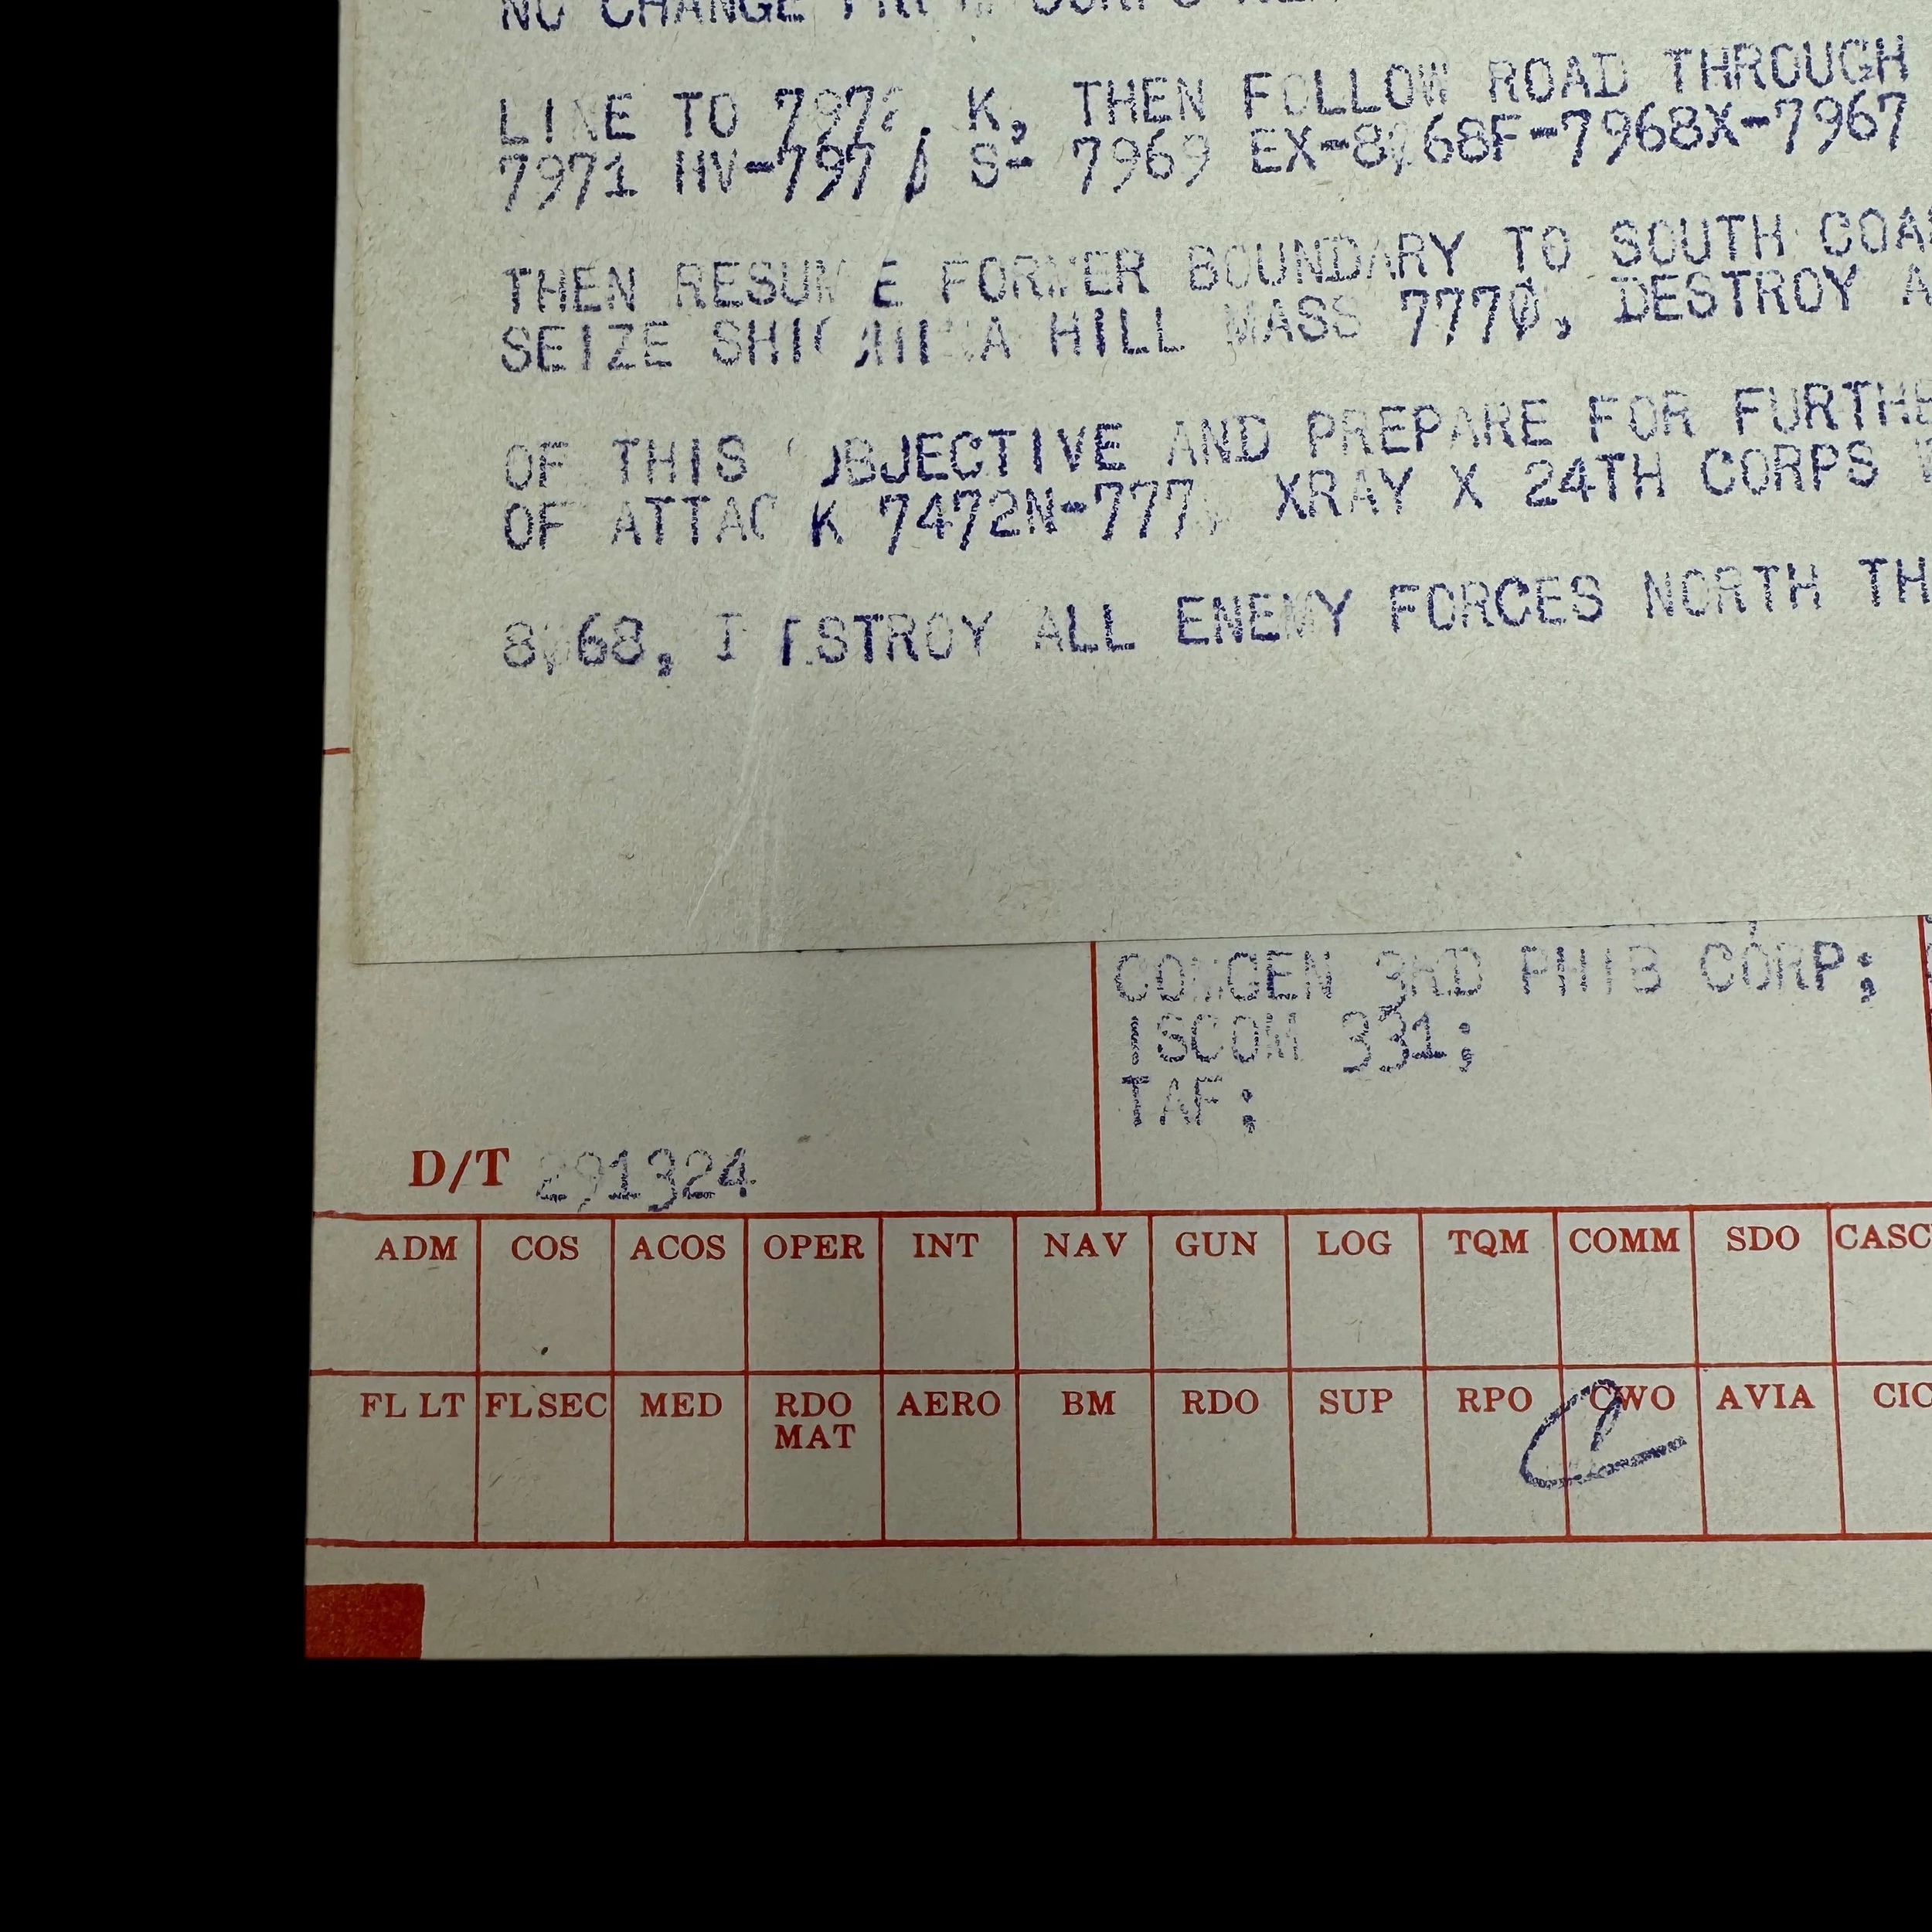 NO CHANGE
LINE TO K, THEN FOLLOW ROAD THROUGH
7971 S- 7969 EX-8068F-7968X-7967
THEN RESUME FORMER BOUNDARY TO SOUTH
SEIZE HILL MASS 7770, DESTROY
OF THIS OBJECTIVE AND PREPARE FOR
OF ATTACK XRAY X 24TH CORPS
8068, DESTROY ALL ENEMY FORCES NORTH
COMGEN 3RD PHIB CORP;
ISCOM 331;
TAF;
D/T 291324
ADM COS ACOS OPER INT NAV GUN LOG TQM COMM SDO CASC
FL LT FL SEC MED RDO MAT AERO BM RDO SUP RPO CWO AVIA CIC